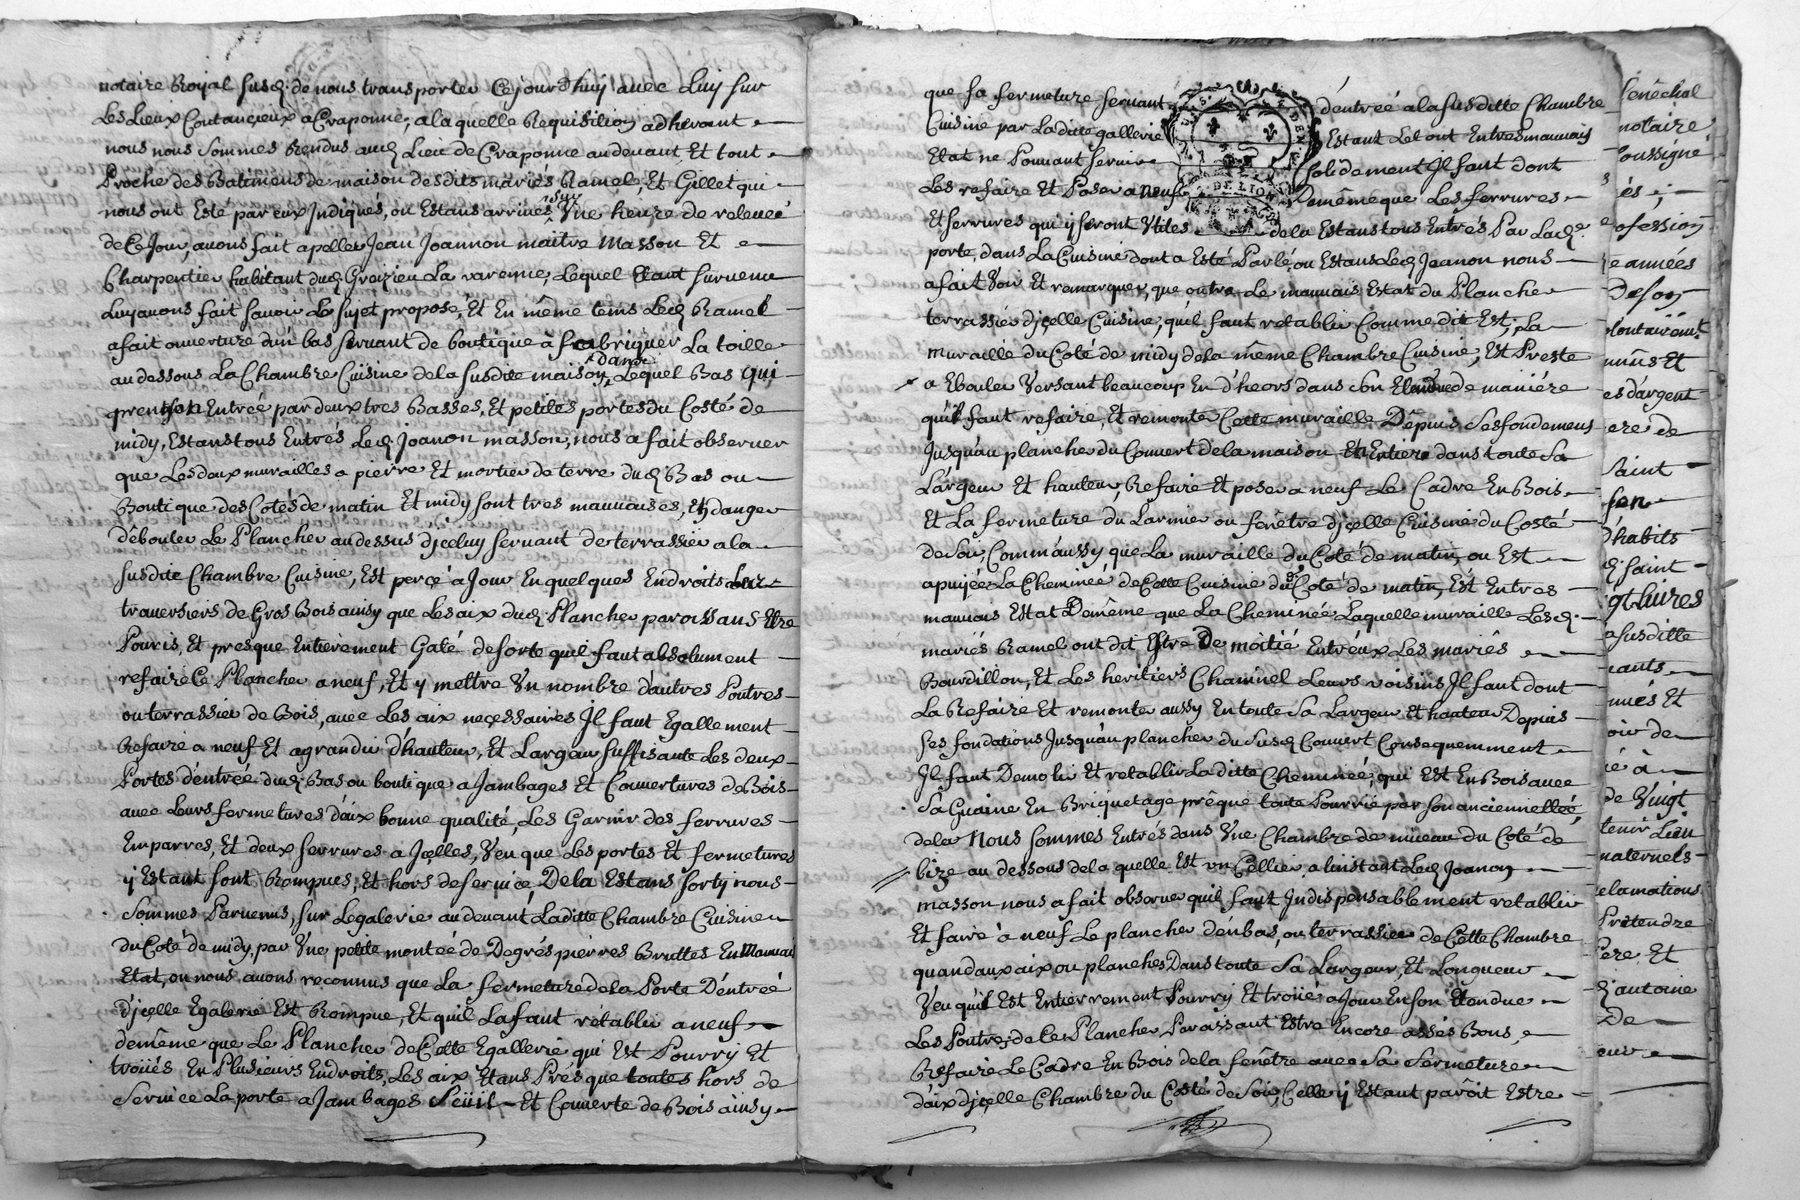 notaire Royal susd. de nous transporter Cejourdhuy avec Luy sur
Les Lieux Contantieux a Craponne, a la quelle Requisition adherant
nous nous sommes Rendus aud. Lieu de Craponne audevant Et tout
Proche des Batimens de maison desdits mariés Ramel, Et Gillet qui
nous ont Esté par eux Indiqués, ou Estans arrivés sur Une heure de relevée
de Ce Jour, avons fait apeller Jean Joannon maitre Masson Et
Charpentier habitant dud. Greizieu La varenne, Lequel Etant survenu
Luy avons fait savoir Le sujet proposé, Et En même tems Led. Ramel
a fait ouverture d'un bas servant de boutique à fabriquer La toille
au dessous La Chambre Cuisine de la susdite maison, dans Lequel Bas qui
prent son Entrée par deux tres Basses, Et petites portes du Costé de
midy, Estans tous Entrés Led. Joanon masson, nous a fait observer
que Les deux murailles a pierre Et mortier de terre dud. Bas ou
Boutique des Cotés de matin Et midy sont tres mauvaises, Et danger
d'ébouler Le Plancher au dessus d'jceluy servant de terrassier a la
susdite Chambre Cuisine, Est perçé à Jour En quelques Endroits
traversiers de Gros Bois ainsy que Les aix dud. Plancher paroissans Etre
Pouris, Et presque Entierement Gaté de sorte quil faut absolument
refaire Ce Plancher a neuf, Et y mettre Un nombre d'autres Poutres
ou terrassier de Bois, avec Les aix neçessaires Jl faut Egallement
Refaire a neuf Et agrandir d'hauteur, Et Largeur suffisante Les deux
Portes d'entrée dud. Bas ou boutique a Jambages Et Couvertures de Bois
avec Leurs fermetures d'aix bonne qualité, Les Garnir des ferrures
Emparres, Et deux serrures a Jcelles, Veu que Les portes Et fermetures
y Estant sont Rompues, Et hors de service, De la Estans sorty nous
sommes Parvenus, sur Legalerie au devant Laditte Chambre Cuisine
du Coté de midy, par Une petite montée de Degrés pierres Bruttes En Mauvais
Etat, ou nous avons reconnus que La fermeture de la Porte D'éntrée
D'jçelle Egalerie Est Rompue, Et quil La faut retablir a neuf
de même que Le Plancher de Cette Egallerie qui Est Pourry Et
troüés En Plusieurs Endroits, Les aix Etans Présque toutes hors de
Service La porte a Jambages Seüil Et Couverte de Bois ainsy
que sa fermeture servant d'éntreé a la susditte Chambre
Cuisine par Laditte gallerie Estant Le tout En tres mauvais
Etat ne Pouvant servir solidement Jl faut dont
Les refaire Et Poser a neuf De même que Les ferrures
Et serrures qui y seront Utiles de la Estans tous Entrés Par Lade.
porte, dans La Cuisine dont a Esté Parlé, ou Estans Led. Joanon nous
a fait Voir Et remarquer, que outre Le mauvais Estat du Plancher
terrassier d'jçelle Cuisine, quil faut retablir Comme dit Est, La
muraille du Coté de midy de la même Chambre Cuisine, Est Preste
a Ebouler Versant beaucoup En d'heors dans son Etendue de maniére
quil faut refaire, Et remonter Cette muraille Dépuis Ses fondemens
Jusqu'au plancher du Couvert de la maison En Entiere dans toute Sa
Largeur Et hauteur, Refaire Et poser a neuf Le Cadre En Bois
Et La fermeture du Larmier ou fenêtre d'jçelle Cuisine du Costé
de Soir, Comm'aussy que La muraille du Coté de matin, ou Est
apuyée La Cheminéé de Cette Cuisine du d. Coté de matin, Est En tres
mauvais Estat De même que La Cheminée Laquelle muraille Lesd.
mariés Ramel ont dit Estre De moitié Entr'eux Les mariés
Bourdillon, Et Les heritiers Chaminel Leurs voisins Jl faut dont
La Refaire Et remonter aussy En toute Sa Largeur Et hauteur Depuis
ses fondations Jusqu'au plancher du susd. Couvert Consequemment
Jl faut Demolir Et retablir Laditte Cheminéé, qui Est En Bois avec
Sa Guaine En Briquetage prêque toute Pourrie par son ancienneteé
de la Nous sommes Entrés dans Une Chambre de niveau du Coté de
bize au dessous de la quelle Est un Cellier a linstant Led. Joanon
masson nous a fait observer quil faut Jndispensablement retablir
Et faire à neuf Le plancher d'énbas, ou terrassier de Cette Chambre
quand aux aix ou planches Dans toute Sa Largeur, Et Longueur
Veu quil Est Entierrement Pourry Et troüés a Jour En son Etendue
Les Poutres de Ce Plancher Paroissant Estre Encore assés Bons,
Refaire Le Cadre En Bois de la fenêtre avec Sa fermeture
d'aix d'jçelle Chambre du Costé de Soir, Celle y Estant parôit Estre
Senêchal
notaire
soussigne
és ;
ofession
re années
De son
olontairemt.
nûs Et
es d'argent
ere de
Saint
ben
d'habits
d. saint
gt Livres
a susditte
eants
nués Et
oir de
ié à
de Vingt
tenir Lieu
maternels
clamations
Prétendre
Pere Et
d. antoine
De
eur
DE LION